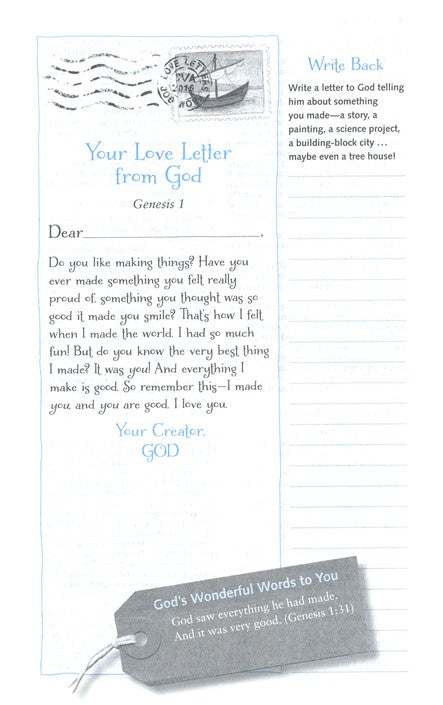 GOD'S LOVE LETTERS
2016
Your Love Letter
from God
Genesis 1
Dear
Do you like making things? Have you
ever made something you felt really
proud of, something you thought was so
good it made you smile? That's how I felt
when I made the world. I had so much
fun! But do you know the very best thing
I made? It was you! And everything I
make is good. So remember this—I made
you, and you are good. I love you.
Your Creator,
GOD
Write Back
Write a letter to God telling
him about something
you made—a story, a
painting, a science project,
a building-block city . . .
maybe even a tree house!
God's Wonderful Words to You
God saw everything he had made.
And it was very good. (Genesis 1:31)